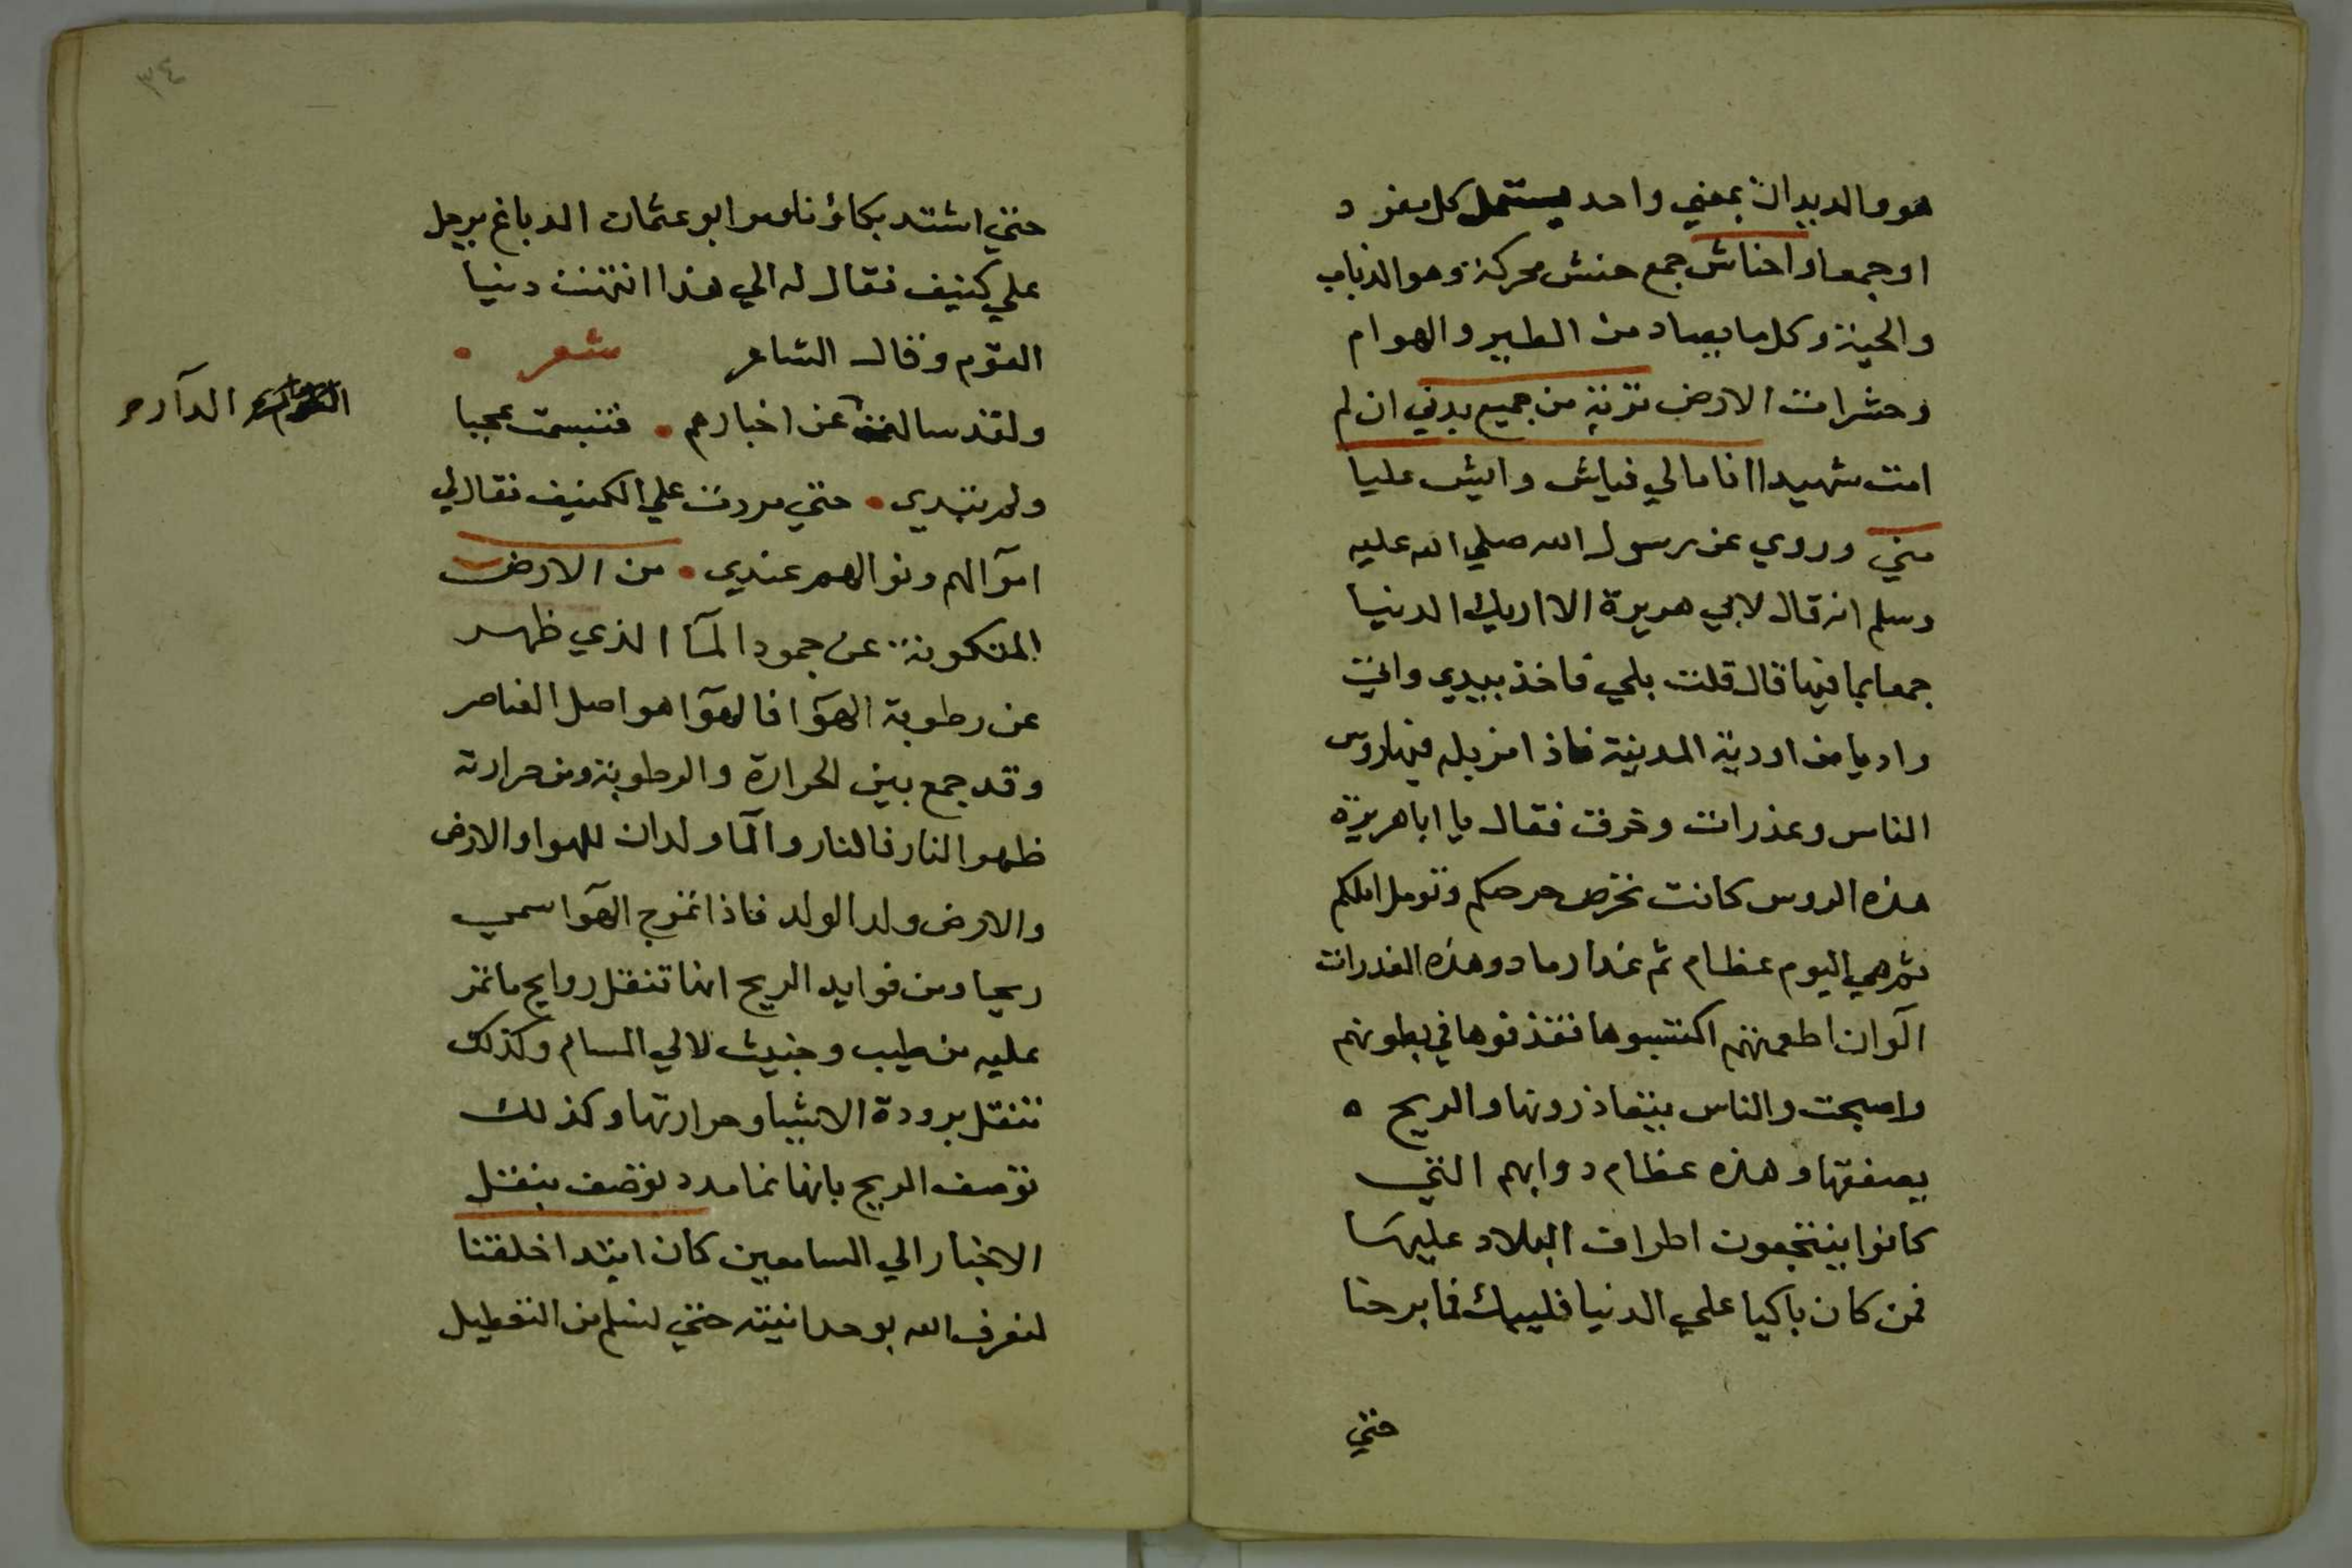 هو والديدان بمعني واحد يستعمل كل مفرد
او جمعا واحناش جمع حنش محركة وهو الذباب
والحية وكل ما يصاد من الطير والهوام
وحشرات الارض تربة من جميع بدني ان لم
امت شهيدا انا مالي فياش وايش عليا
مني وروي عن رسول الله صلي الله عليه
وسلم انه قال لابي هريرة الا اريك الدنيا
جمعا بما فيها قال قلت بلي فاخذ بيدي واتي
واديا من اودية المدينة فاذا مزبله فيها روس
الناس وعذرات وخرق فقال يا ابا هريرة
هذه الروس كانت تحرص حرصكم وتومل املكم
ثم هي اليوم عظام ثم غدا رماد وهذه العذرات
الوان اطعمتهم اكتسبوها فقذفوها في بطونهم
واصبحت والناس يتقاذرونها والريح ه
يصفقها وهذه عظام دوابهم التي
كانوا ينتجعون اطراف البلاد عليها
فمن كان باكيا علي الدنيا فليبك فما برحنا
حتي
٣٤
حتي اشتد بكاؤنا ومر ابو عثمان الدباغ برجل
علي كنيف فقال له الي هذا انتهت دنيا
القوم وقال الشاعر شعر
ولقد سالت عن اخبارهم فتبسمت عجبا
الدار
ولم تبدي حتي مررت علي الكنيف فقال لي
اموالهم ونوالهم عندي من الارض
المتكونة عن جمود المآ الذي ظهر
عن رطوبة الهوآ فالهوآ هو اصل العناصر
وقد جمع بين الحرارة والرطوبة ومن حرارته
ظهر النار فالنار والمآ ولدان للهوا والارض
والارض ولد الولد فاذا تموج الهوآ سمي
ريحا ومن فوايد الريح انها تنقل روايح ما تمر
عليه من طيب وخبيث لالي المسام وكذلك
تنقل برودة الاشيا وحرارتها وكذلك
توصف الريح بانها نمامه د توصف بنقل
الاخبار الي السامعين كان ابتدا خلقتنا
لنعرف الله بوحدانيته حتي نسلم من التعطيل